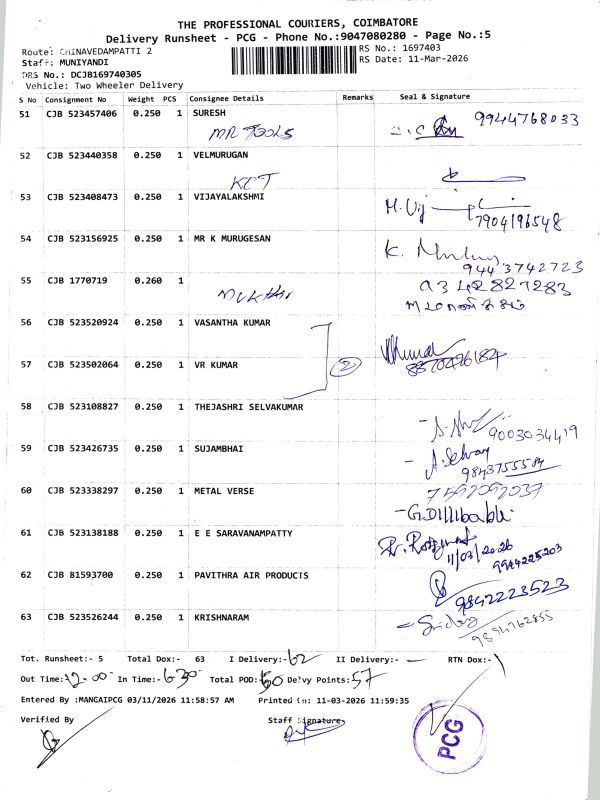 THE PROFESSIONAL COURIERS, COIMBATORE
Delivery Runsheet - PCG - Phone No.:9047080280 - Page No.:5
Route: CHINAVEDAMPATTI 2
RS No.: 1697403
Staff: MUNIYANDI
RS Date: 11-Mar-2026
DRS No.: DCJB169740305
Vehicle: Two Wheeler Delivery
S No Consignment No Weight PCS Consignee Details Remarks Seal & Signature
51 CJB 523457406 0.250 1 SURESH 9944768033
MR TOOLS
52 CJB 523440358 0.250 1 VELMURUGAN
KCT
53 CJB 523408473 0.250 1 VIJAYALAKSHMI M. Vij
7904196548
54 CJB 523156925 0.250 1 MR K MURUGESAN K.
9443742723
55 CJB 1770719 0.260 1 9342827283
56 CJB 523520924 0.250 1 VASANTHA KUMAR
57 CJB 523502064 0.250 1 VR KUMAR 2
58 CJB 523108827 0.250 1 THEJASHRI SELVAKUMAR
9003034419
59 CJB 523426735 0.250 1 SUJAMBHAI A. Selvay
9843755504
60 CJB 523338297 0.250 1 METAL VERSE 7592092039
G. Dillibabu
61 CJB 523138188 0.250 1 E E SARAVANAMPATTY
11/03/2026
9994225203
62 CJB 81593700 0.250 1 PAVITHRA AIR PRODUCTS
9842223523
63 CJB 523526244 0.250 1 KRISHNARAM
9894762855
Tot. Runsheet:- 5 Total Dox:- 63 I Delivery:- 62 II Delivery:- — RTN Dox:- 1
Out Time: 12.00 In Time:- 6.30 Total POD: 60 Delvy Points: 57
Entered By :MANGAIPCG 03/11/2026 11:58:57 AM Printed On: 11-03-2026 11:59:35
Verified By Staff Signature
PCG